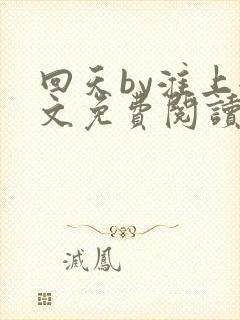 回天by淮上
文免費閱讀
滅鳳